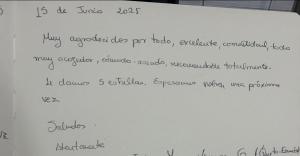 15 de Junio 2025
Muy agradecidos por todo, excelente, comodidad, todo
muy acogedor, recomendable totalmente.
Le damos 5 estrellas. Esperamos volver, una próxima
vez
Saludos.